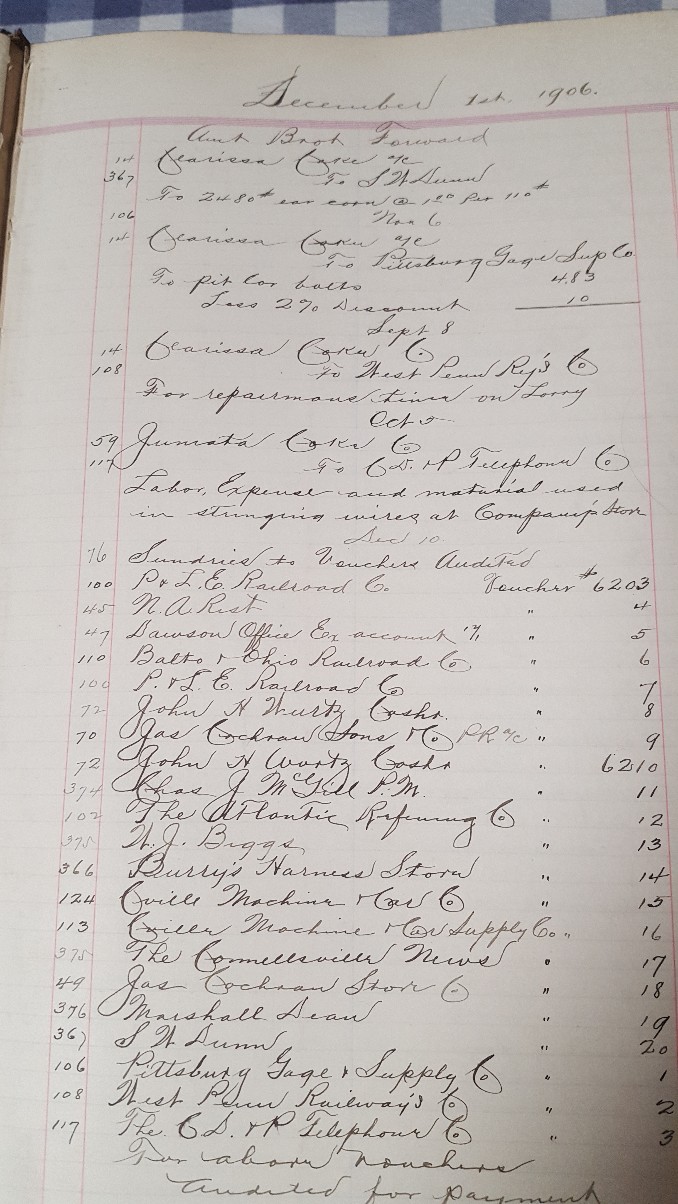 December 1st. 1906.
Amt Brot Forward
14 Clarissa Coke a/c
367 To S W Dunn
To 2480# ear corn @ 1 00 Per 110#
Nov 6
106
14 Clarissa Coke a/c
To Pittsburg Gage Sup Co
To pit Car bolts 4.83
Less 2% Discount 10
Sept 8
14 Clarissa Coke Co
108 To West Penn Ry's Co
For repairmans time on Lorry
Oct 5
59 Juniata Coke Co
117 To C.D. & P Telephone Co
Labor, Expense and material used
in stringing wires at Company's Store
Dec 10
76 Sundries to Vouchers Audited
100 P & L. E. Railroad Co. Voucher # 6203
45 N. A. Rist " 4
47 Dawson Office Ex account " 5
110 Balto & Ohio Railroad Co " 6
100 P. & L. E. Railroad Co " 7
72 John H Wurtz Cashr. " 8
70 Jas Cochran Sons & Co PR a/c " 9
72 John H Wurtz Cashr " 6210
374 Chas J McGill P.M. " 11
102 The Atlantic Refining Co " 12
375 W. J. Biggs " 13
366 Burry's Harness Store " 14
124 Cville Machine & Car Co " 15
113 Cville Machine & Car Supply Co. " 16
375 The Connellsville News " 17
49 Jas Cochran Store Co " 18
376 Marshall Dean " 19
367 S W Dunn " 20
106 Pittsburg Gage & Supply Co " 1
108 West Penn Railway's Co " 2
117 The C D. & P Telephone Co " 3
For above vouchers
audited for payment